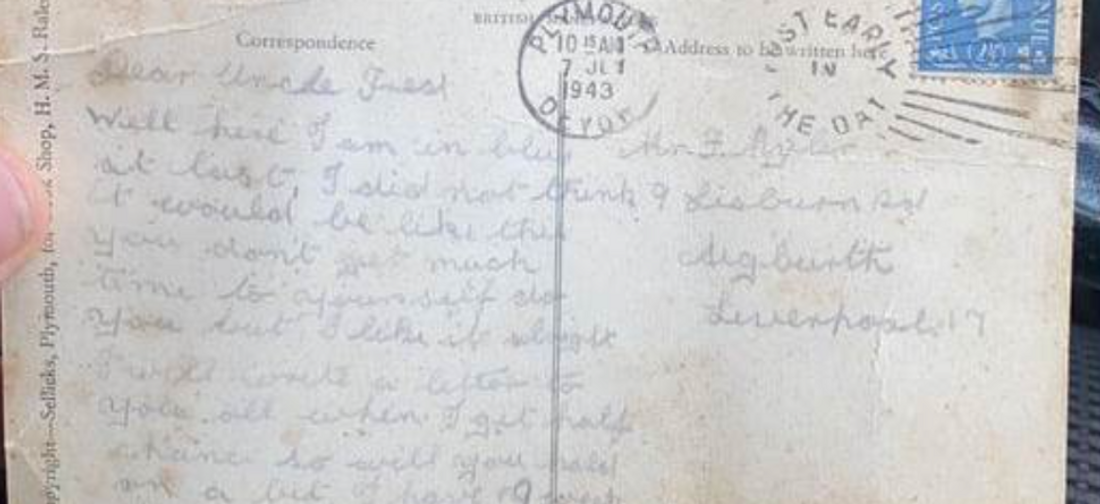 Correspondence
Address to be written here
PLYMOUTH
10 15 AM
7 JLY
1943
DEVON
POST EARLY
IN
THE DAY
2½
Dear Uncle Fred
Well here I am in blue
at last, I did not think
it would be like this
you don't get much
time to yourself do
you but I like it alright
I will write a letter to
you all when I get half
chance so will you hold
on a bit I have
Mr F.
9 Lisburn Rd
Aigburth
Liverpool. 17
Copyright—Sellicks, Plymouth, for Shop, H. M. S. Rale